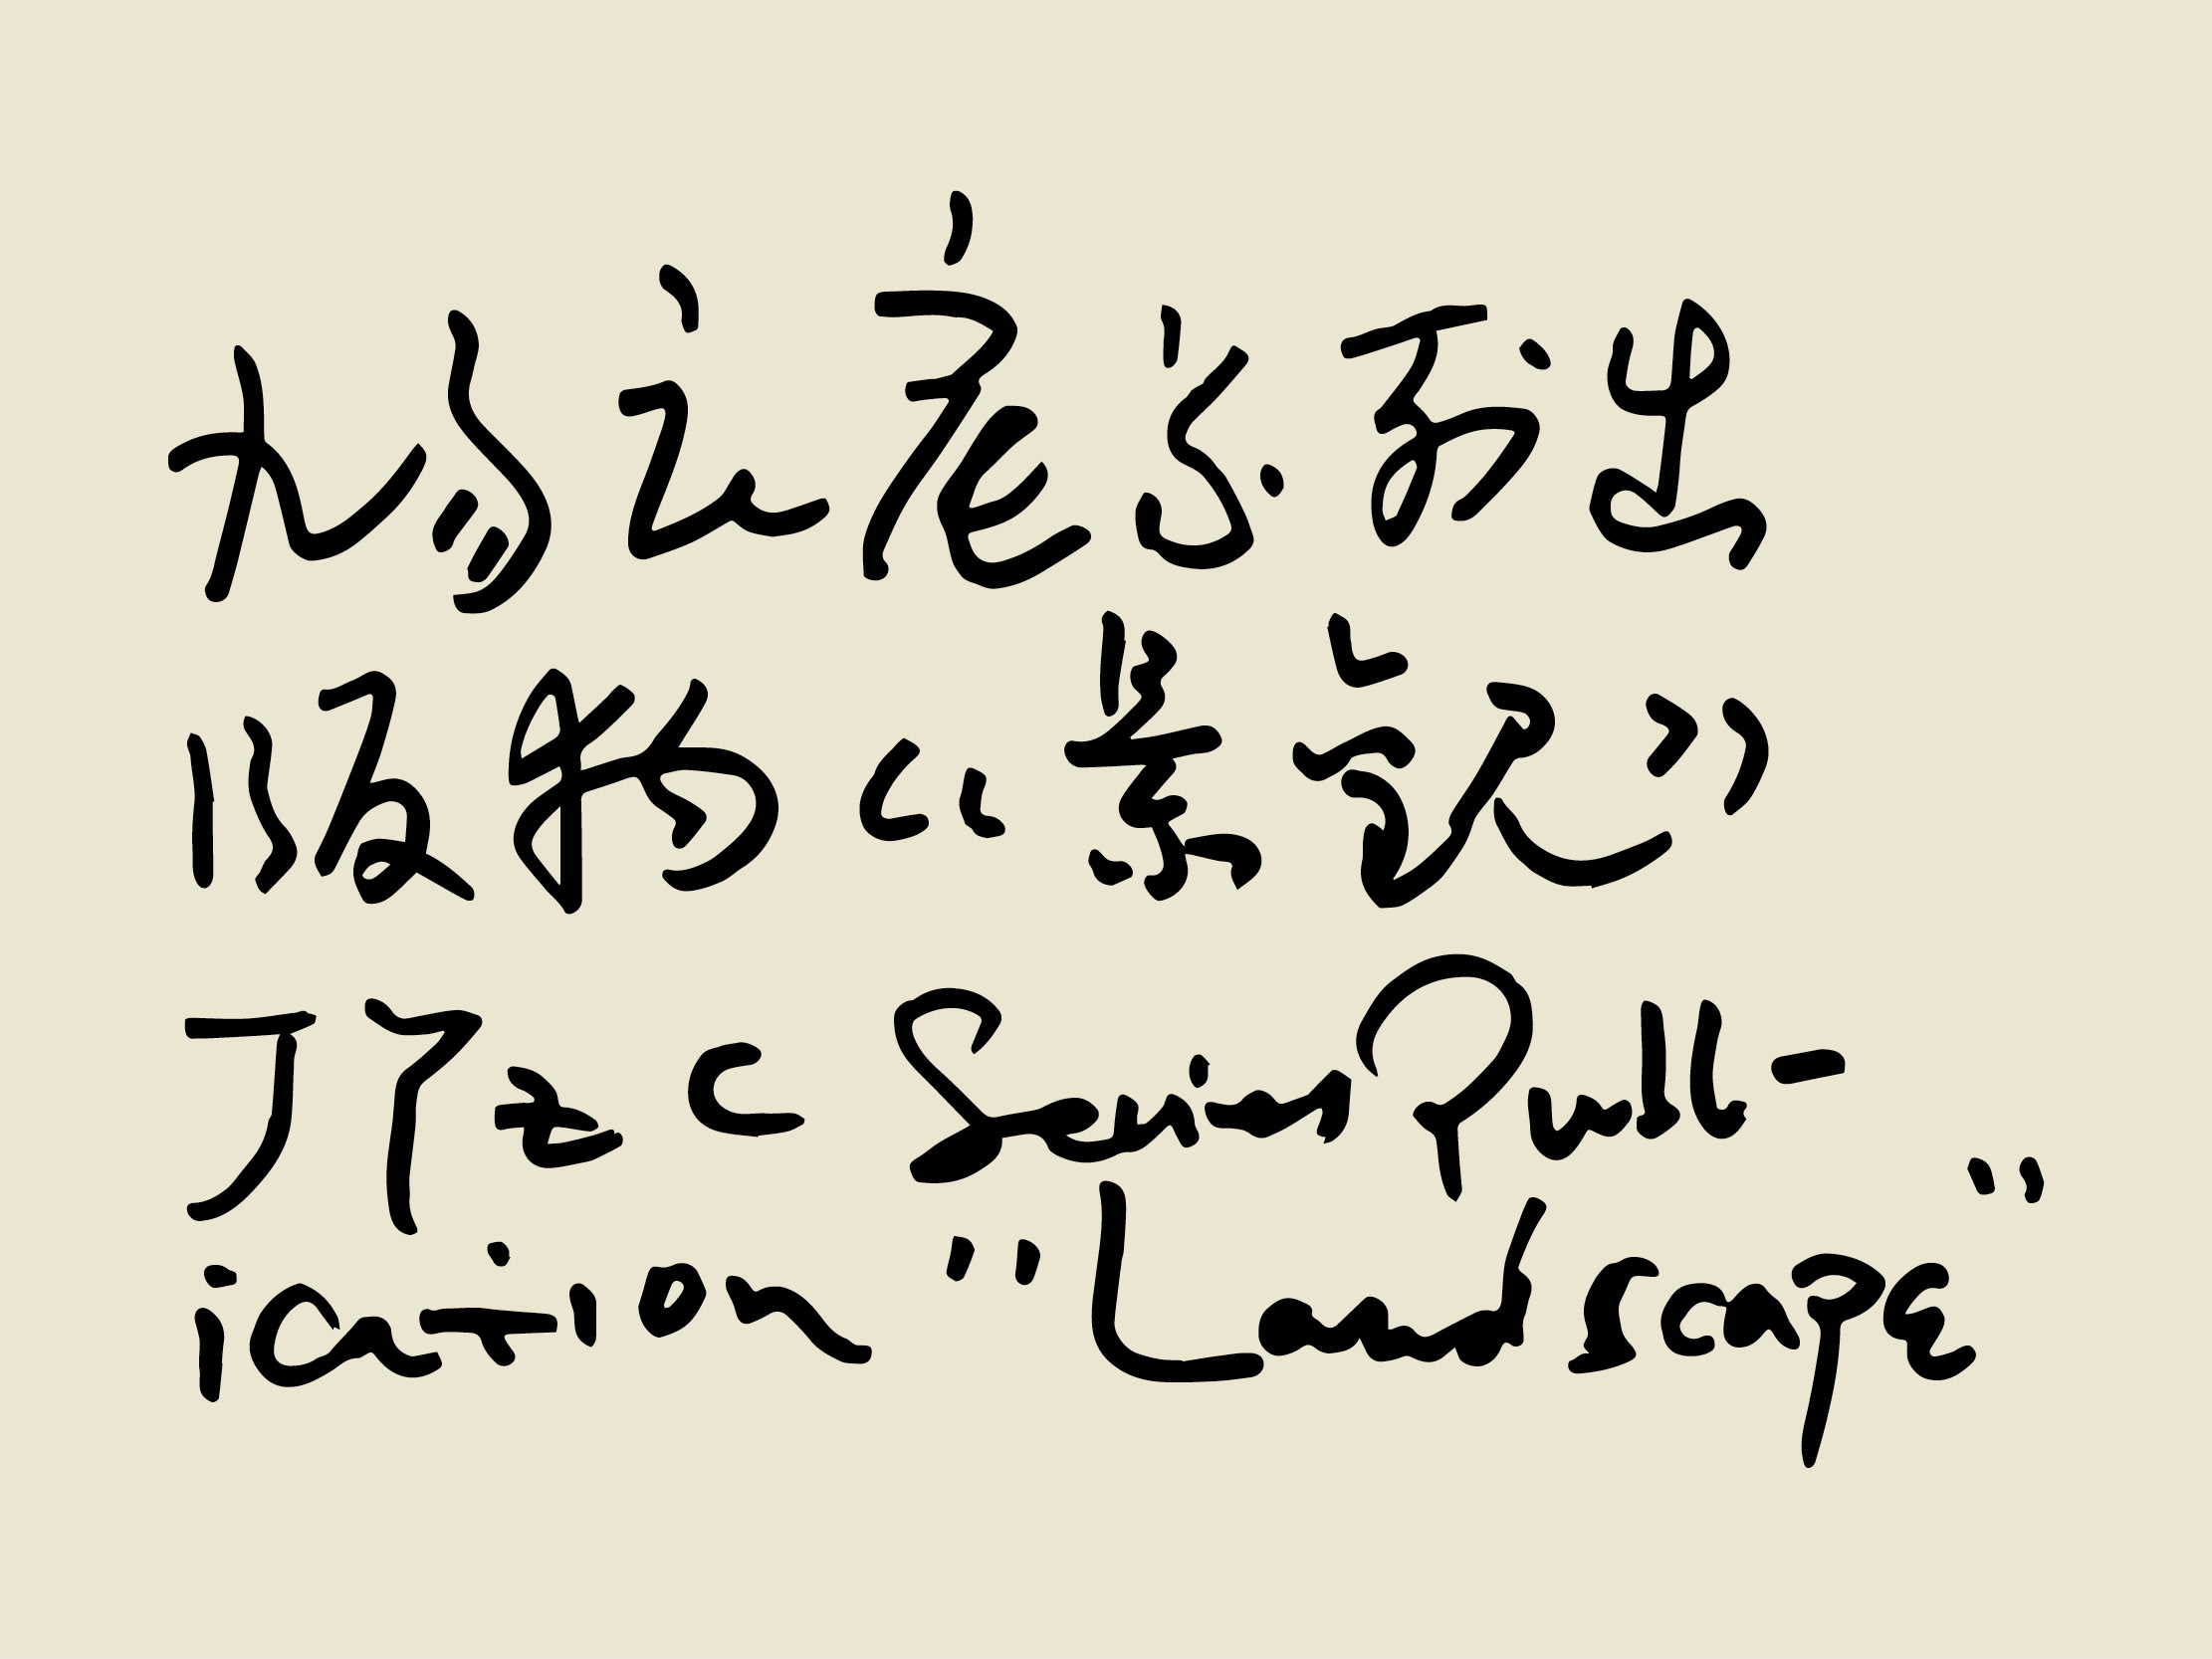 系列出
版物“景观”
JYZC Series Publ-
ication "Landscape"